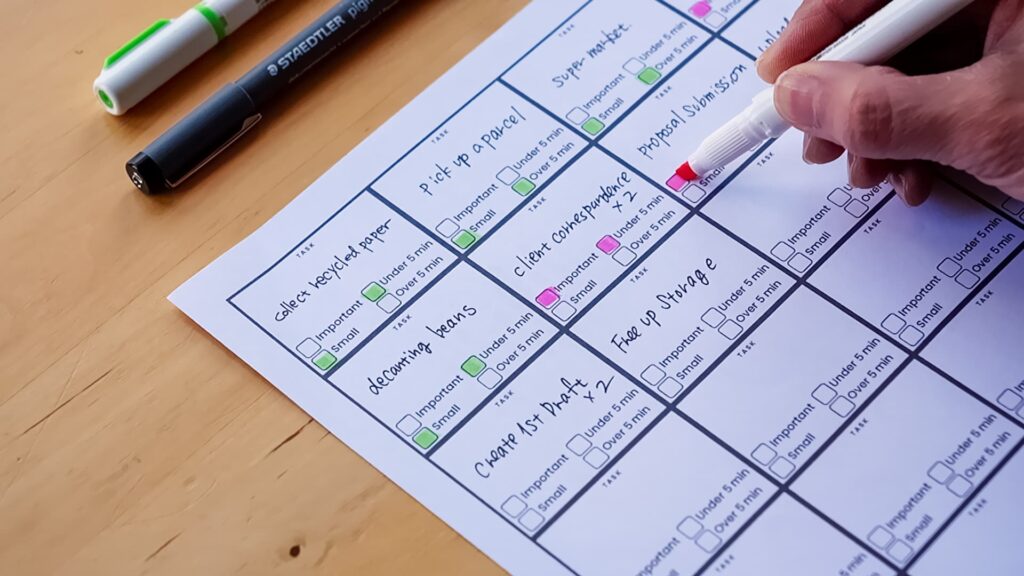 STAEDTLER pig
TASK
collect recycled paper
Important Under 5 min
Small Over 5 min
TASK
pick up a parcel
Important Under 5 min
Small Over 5 min
TASK
Super market
Important Under 5 min
Small Over 5 min
Small
TASK
decanting beans
Important Under 5 min
Small Over 5 min
TASK
client correspondence
x 2
Important Under 5 min
Small Over 5 min
TASK
Proposal Submission
Small
TASK
Create 1st Draft
x 2
Important Under 5 min
Small Over 5 min
TASK
Free up Storage
Important Under 5 min
Small Over 5 min
TASK
Important
Small
TASK
Important Under 5 min
Over 5 min
TASK
Important Under 5 min
Small Over 5 min
TASK
Important Under 5 min
Small Over 5 min
TASK
TASK
Important Under 5 min
Small Over 5 min
TASK
TASK